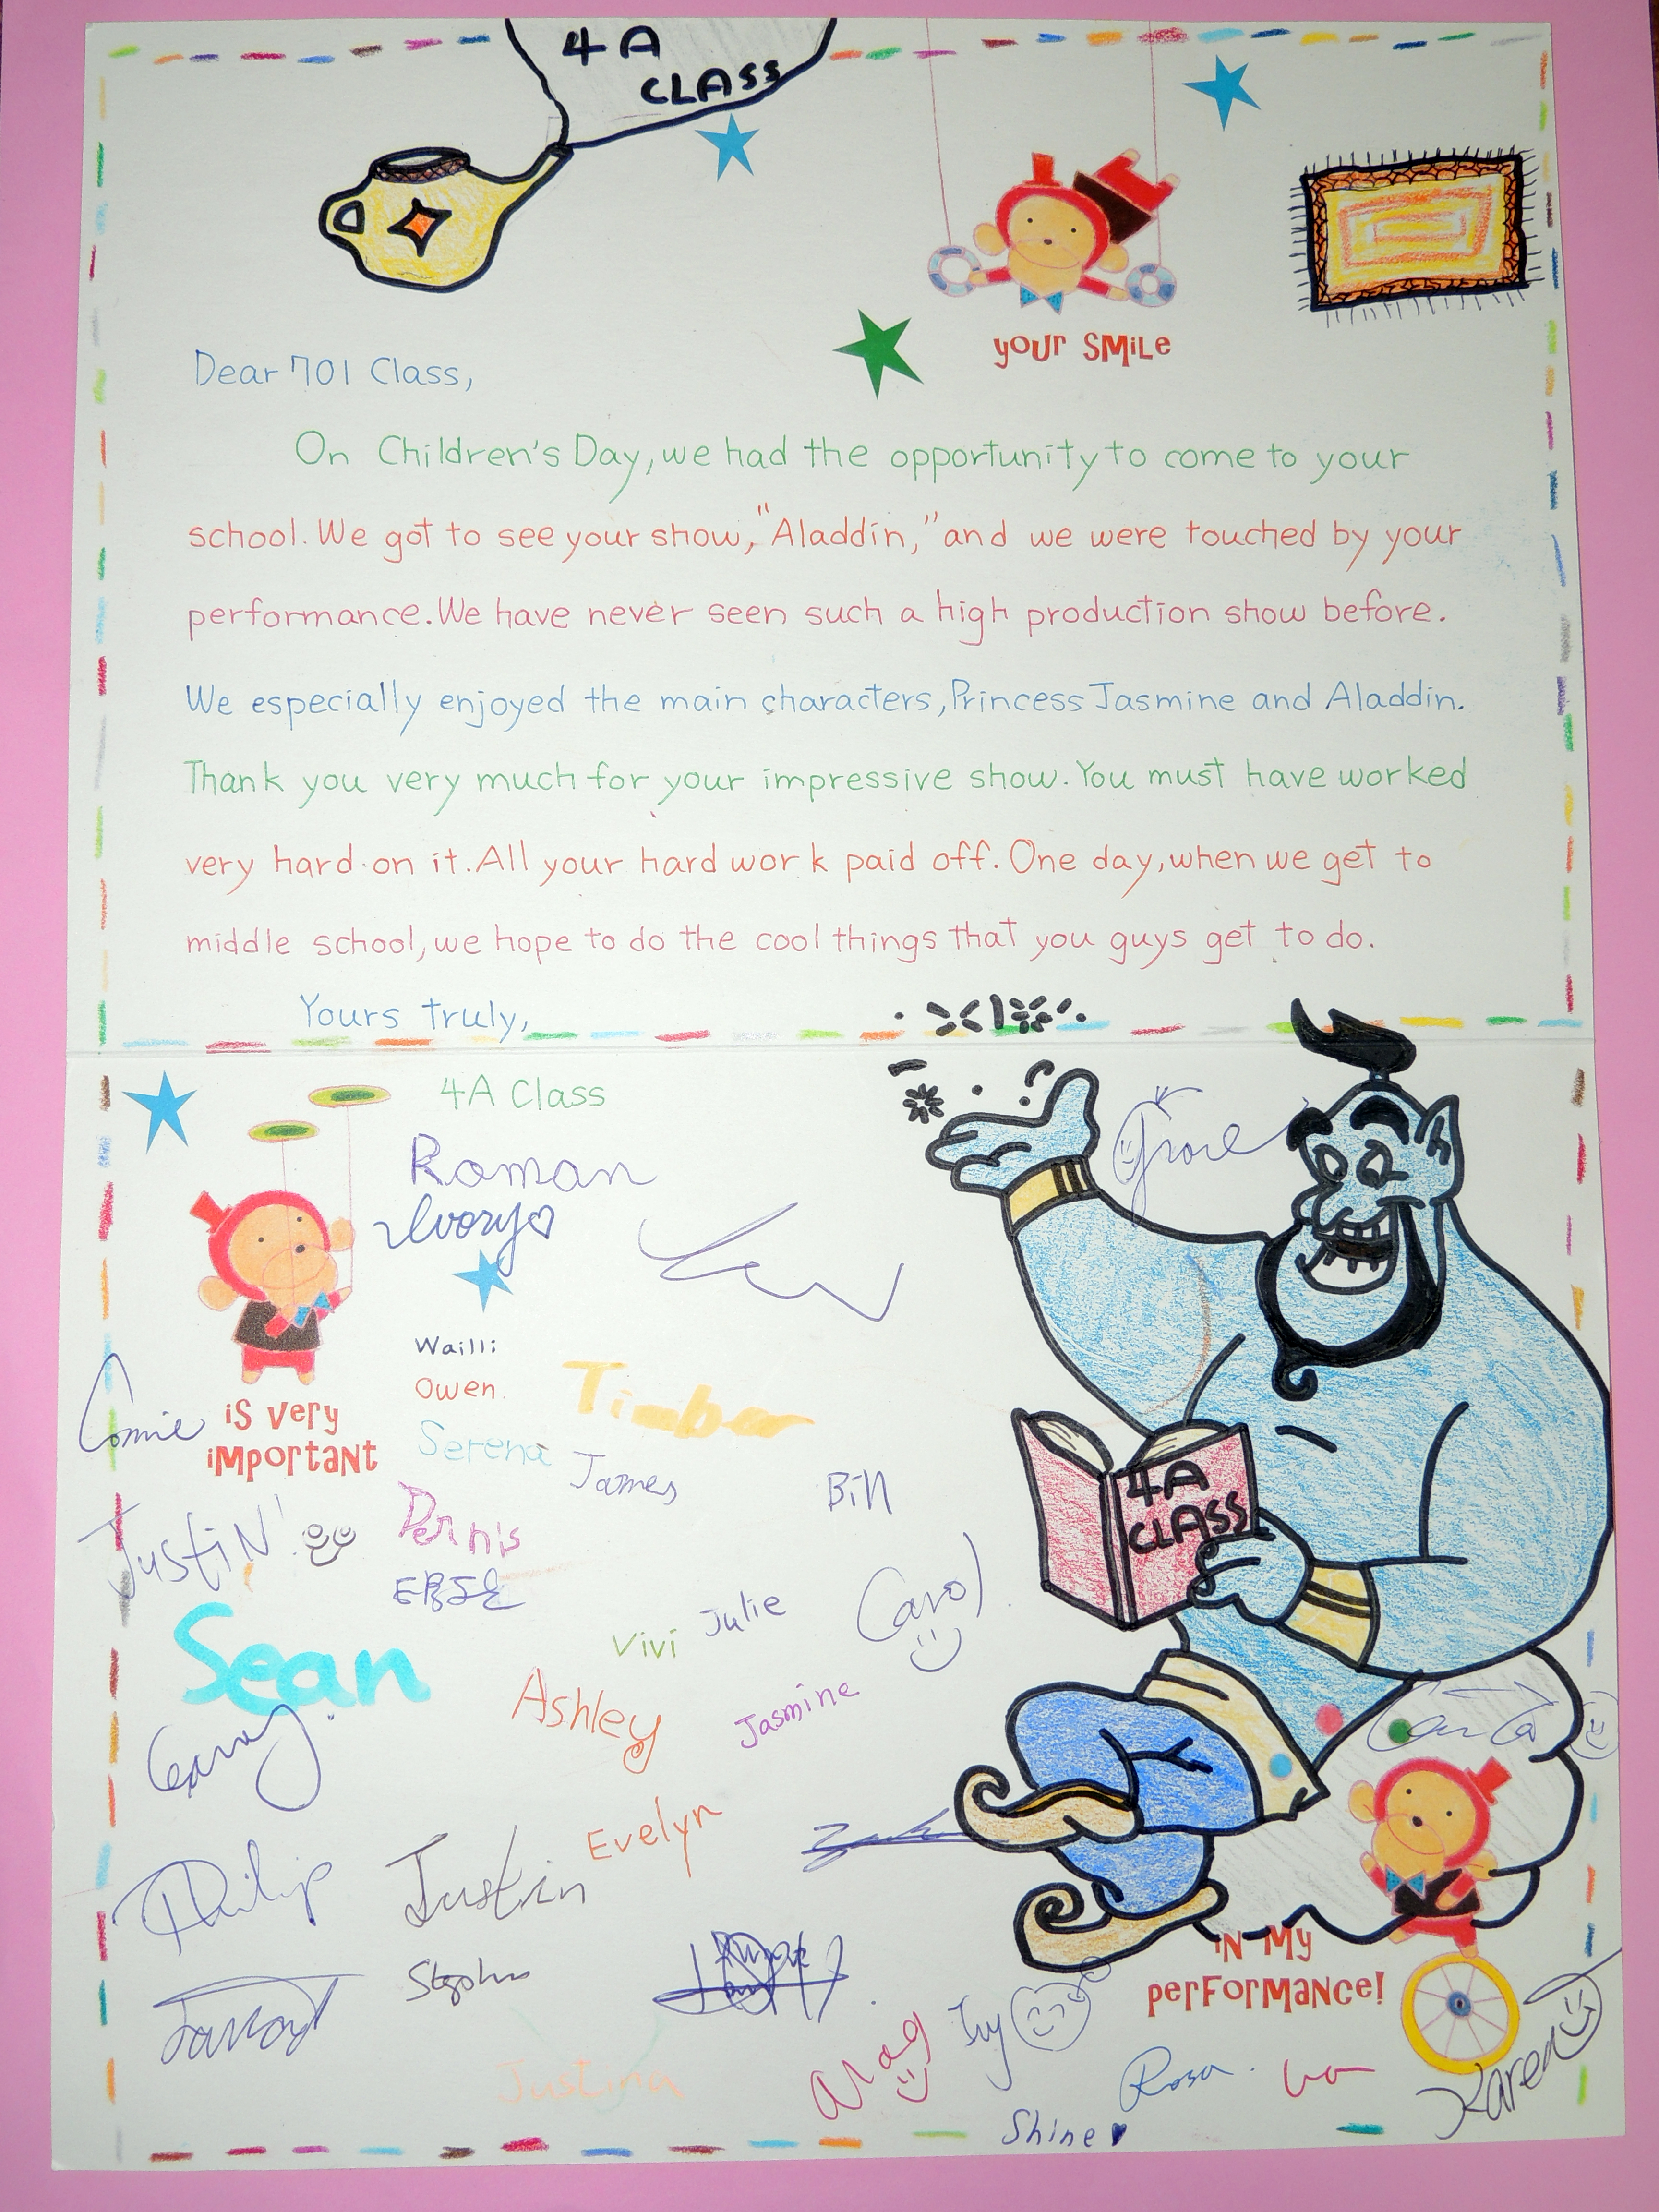 4A
CLASS
your SMiLe
Dear 701 Class,
On Children's Day, we had the opportunity to come to your
school. We got to see your show, "Aladdin," and we were touched by your
performance. We have never seen such a high production show before.
We especially enjoyed the main characters, Princess Jasmine and Aladdin.
Thank you very much for your impressive show. You must have worked
very hard on it. All your hard work paid off. One day, when we get to
middle school, we hope to do the cool things that you guys get to do.
Yours truly,
4A Class
Roman
Ivory
Wailli
Owen
Timber
Connie
iS Very
iMportaNt
Serena
James
Bill
4A
CLASS
JustiN
Dennis
Julie
Carol
Vivi
Sean
Ashley
Jasmine
Evelyn
Philip
Justin
iN My
perForMaNce!
Ivy
Justina
Rosa
Karen
Shine